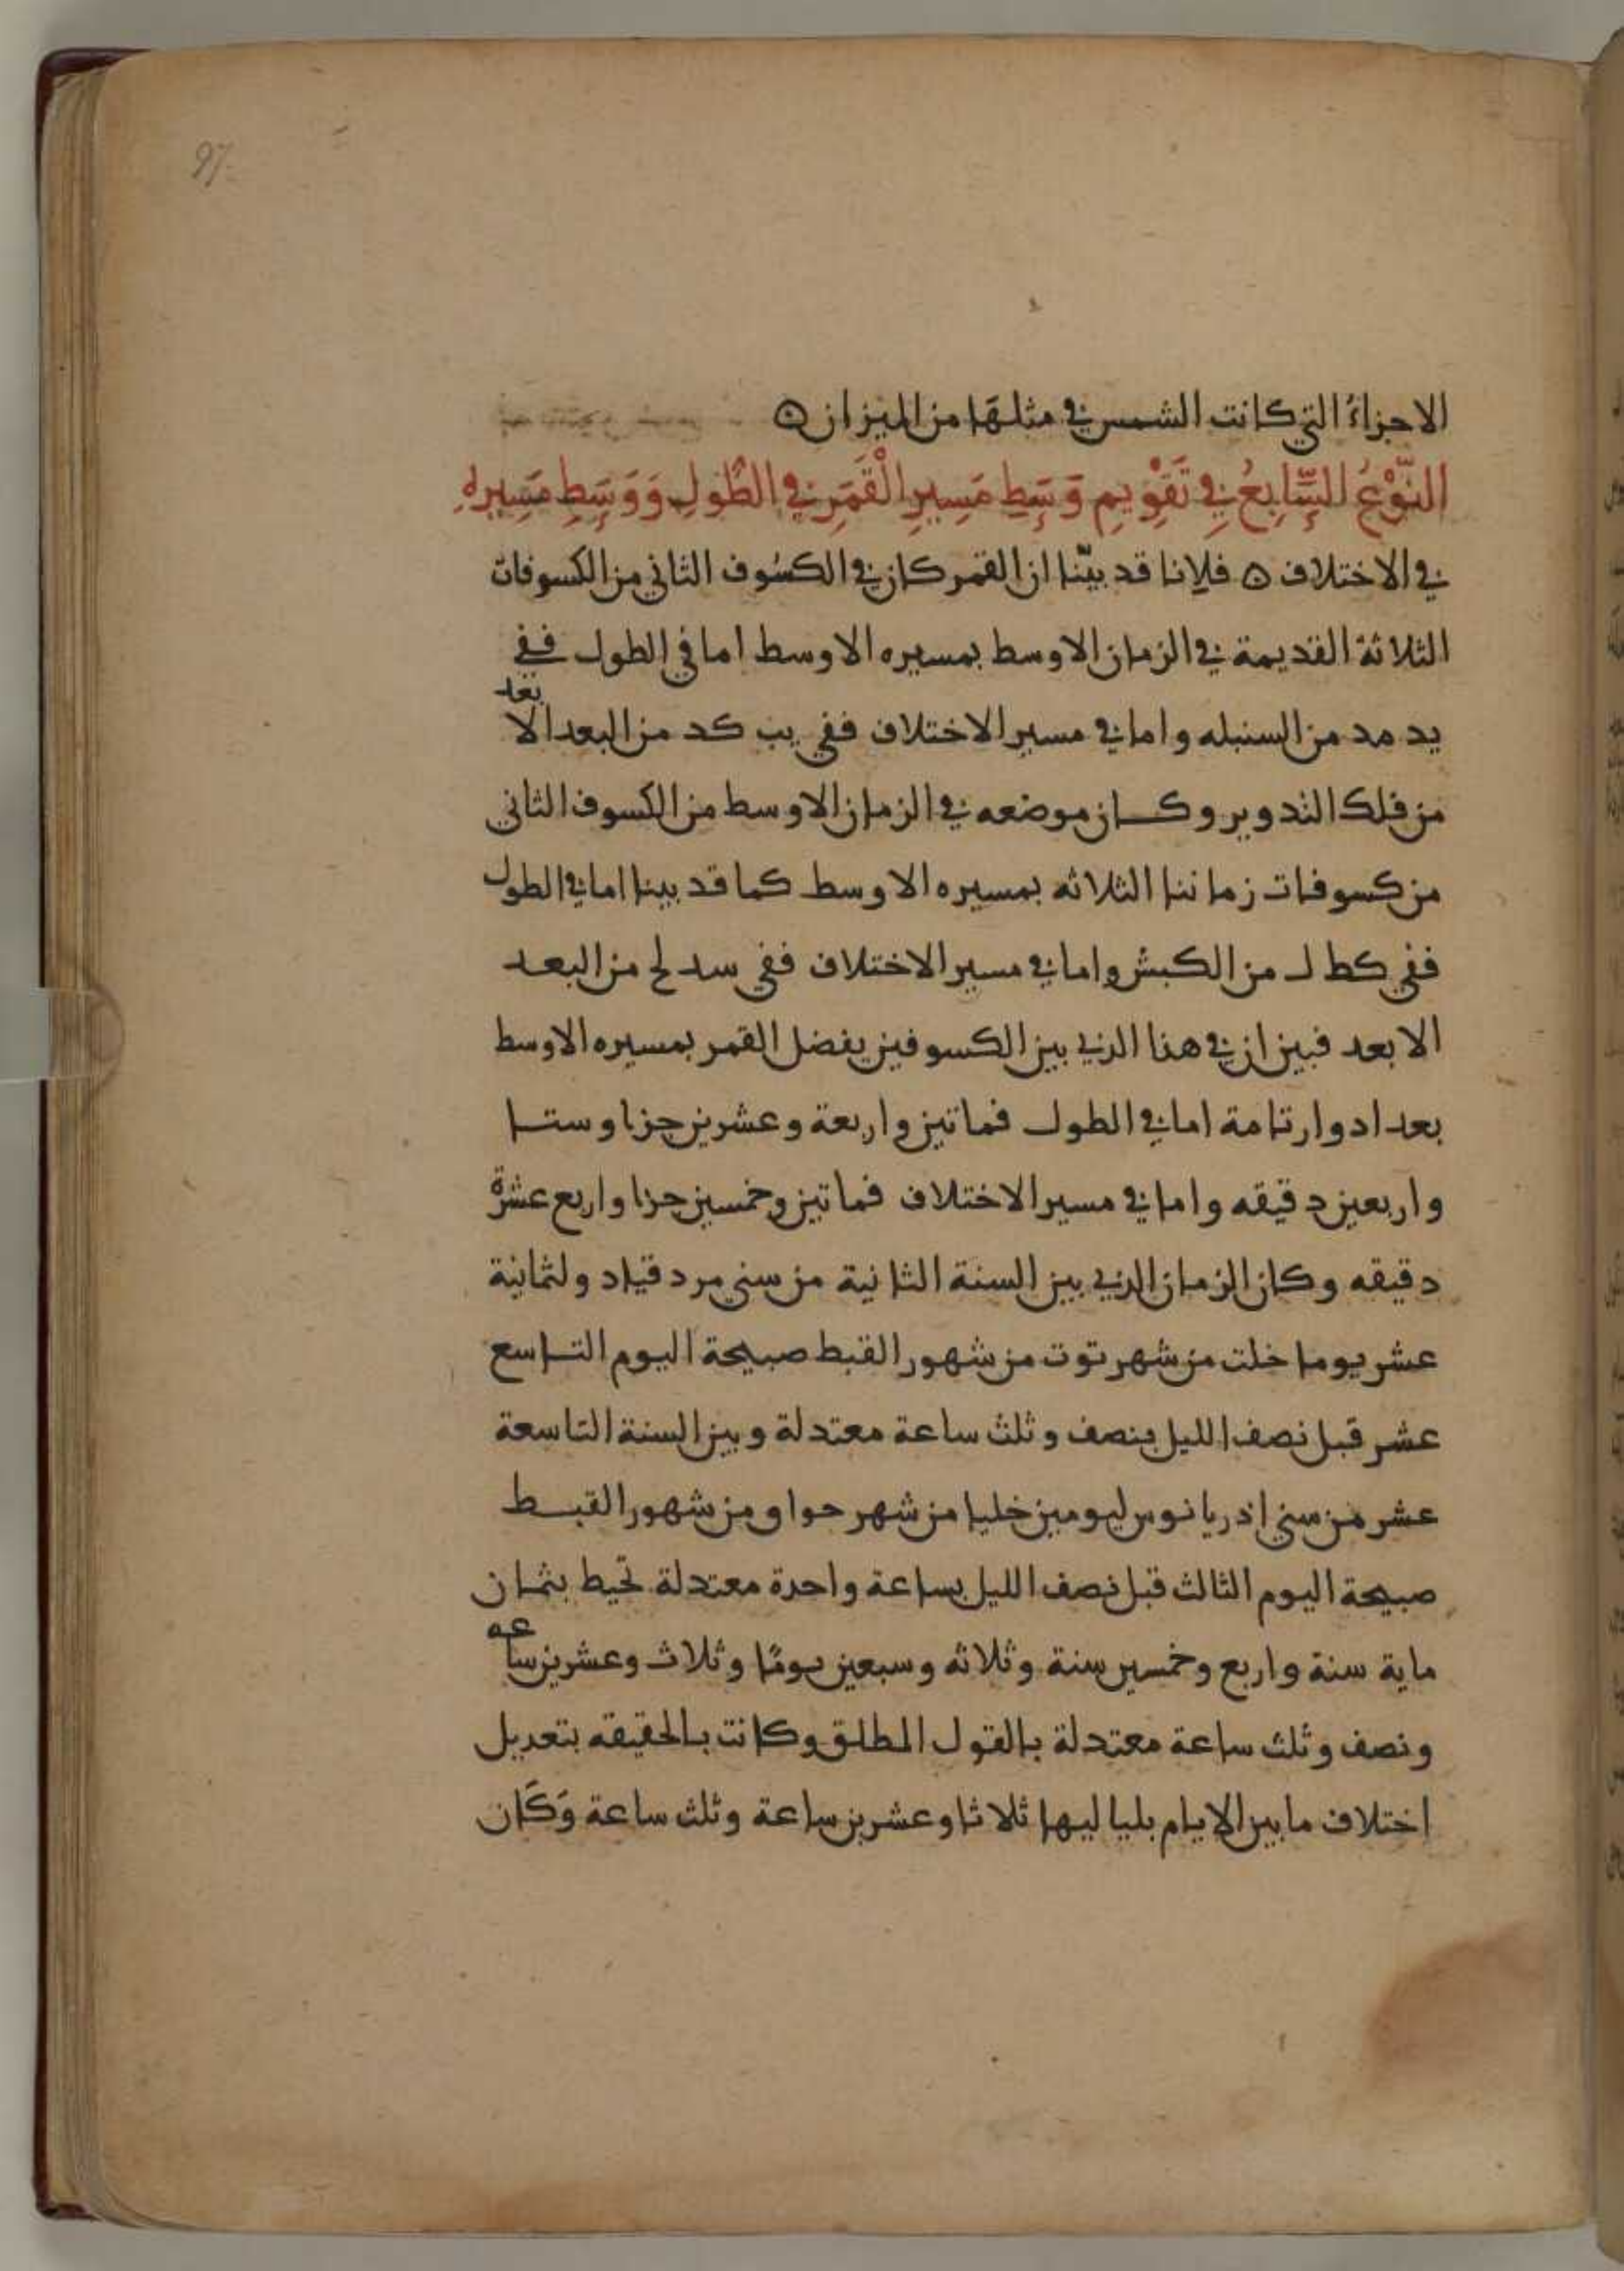 97
الاجزاءُ التي كانت الشمس في مثلها من الميزان ه
النَّوْعُ السَّابِعُ فِي تَقْوِيمِ وَسَطِ مَسِيرِ الْقَمَرِ في الطُولِ وَوَسَطِ مَسِيرِهِ
في الاختلاف ه فلانا قد بيّنا ان القمر كان في الكسُوف الثاني من الكسوفات
الثلاثة القديمة في الزمان الاوسط بمسيره الاوسط اما في الطول ففي
يد مد من السنبله واما في مسير الاختلاف ففي يب كد من البعد الابعد
من فلك التدوير وكان موضعه في الزمان الاوسط من الكسوف الثاني
من كسوفات زماننا الثلاثه بمسيره الاوسط كما قد بينا اما في الطول
ففي كط ل من الكبش واما في مسير الاختلاف ففي سد لح من البعد
الابعد فبين ان في هذا الذي بين الكسوفين يفضل القمر بمسيره الاوسط
بعد ادوار تامة اما في الطول فماتين واربعة وعشرين جزا وستا
واربعين دقيقه واما في مسير الاختلاف فماتين وخمسين جزا واربع عشرة
دقيقه وكان الزمان الذي بين السنة الثانية من سني مردقياد ولثمانية
عشر يوما خلت من شهر توت من شهور القبط صبيحة اليوم التاسع
عشر قبل نصف الليل بنصف وثلث ساعة معتدلة وبين السنة التاسعة
عشر من سني اذريانوس ليومين خليا من شهر حواو من شهور القبط
صبيحة اليوم الثالث قبل نصف الليل بساعة واحدة معتدلة تحيط بثمان
ماية سنة واربع وخمسين سنة وثلاثه وسبعين يومًا وثلاث وعشرين ساعه
ونصف وثلث ساعة معتدلة بالقول المطلق وكانت بالحقيقه بتعديل
اختلاف ما بين الايام بلياليها ثلاثا وعشرين ساعة وثلث ساعة وَكَان